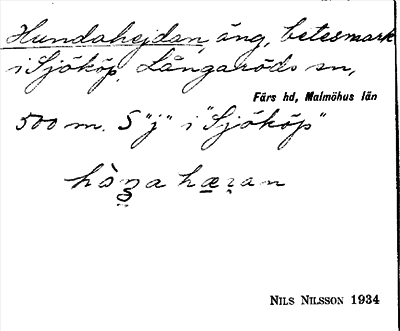 Hundahejdan, äng, betesmark
i Sjököp, Långaröds sn,
Färs hd, Malmöhus län
500 m. S "j" i "Sjököp"
NILS NILSSON 1934